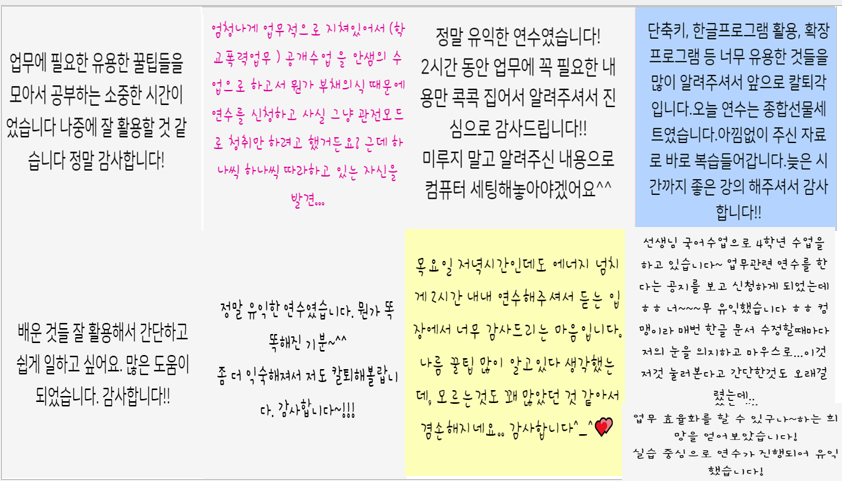 업무에 필요한 유용한 꿀팁들을
모아서 공부하는 소중한 시간이
었습니다 나중에 잘 활용할 것 같
습니다 정말 감사합니다!
엄청나게 업무적으로 지쳐있어서 (학
교폭력업무 ) 공개수업 을 안샘의 수
업으로 하고서 뭔가 부채의식 때문에
연수를 신청하고 사실 그냥 관전모드
로 청취만 하려고 했거든요? 근데 하
나씩 하나씩 따라하고 있는 자신을
발견...
정말 유익한 연수였습니다!
2시간 동안 업무에 꼭 필요한 내
용만 콕콕 집어서 알려주셔서 진
심으로 감사드립니다!!
미루지 말고 알려주신 내용으로
컴퓨터 세팅해놓아야겠어요^^
단축키, 한글프로그램 활용, 확장
프로그램 등 너무 유용한 것들을
많이 알려주셔서 앞으로 칼퇴각
입니다.오늘 연수는 종합선물세
트였습니다.아낌없이 주신 자료
로 바로 복습들어갑니다.늦은 시
간까지 좋은 강의 해주셔서 감사
합니다!!
배운 것들 잘 활용해서 간단하고
쉽게 일하고 싶어요. 많은 도움이
되었습니다. 감사합니다!!
정말 유익한 연수였습니다. 뭔가 똑
똑해진 기분~^^
좀 더 익숙해져서 저도 칼퇴해볼랍니
다. 감사합니다~!!!
목요일 저녁시간인데도 에너지 넘치
게 2시간 내내 연수해주셔서 듣는 입
장에서 너무 감사드리는 마음입니다.
나름 꿀팁 많이 알고있다 생각했는
데, 모르는것도 꽤 많았던 것 같아서
겸손해지네요.. 감사합니다^_^
선생님 국어수업으로 4학년 수업을
하고 있습니다~ 업무관련 연수를 한
다는 공지를 보고 신청하게 되었는데
ㅎㅎ 너~~~무 유익했습니다 ㅎㅎ 컴
맹이라 매번 한글 문서 수정할때마다
저의 눈을 의지하고 마우스로...이것
저것 눌러본다고 간단한것도 오래걸
렸는데...
업무 효율화를 할 수 있구나~하는 희
망을 얻어보았습니다!
실습 중심으로 연수가 진행되어 유익
했습니다!